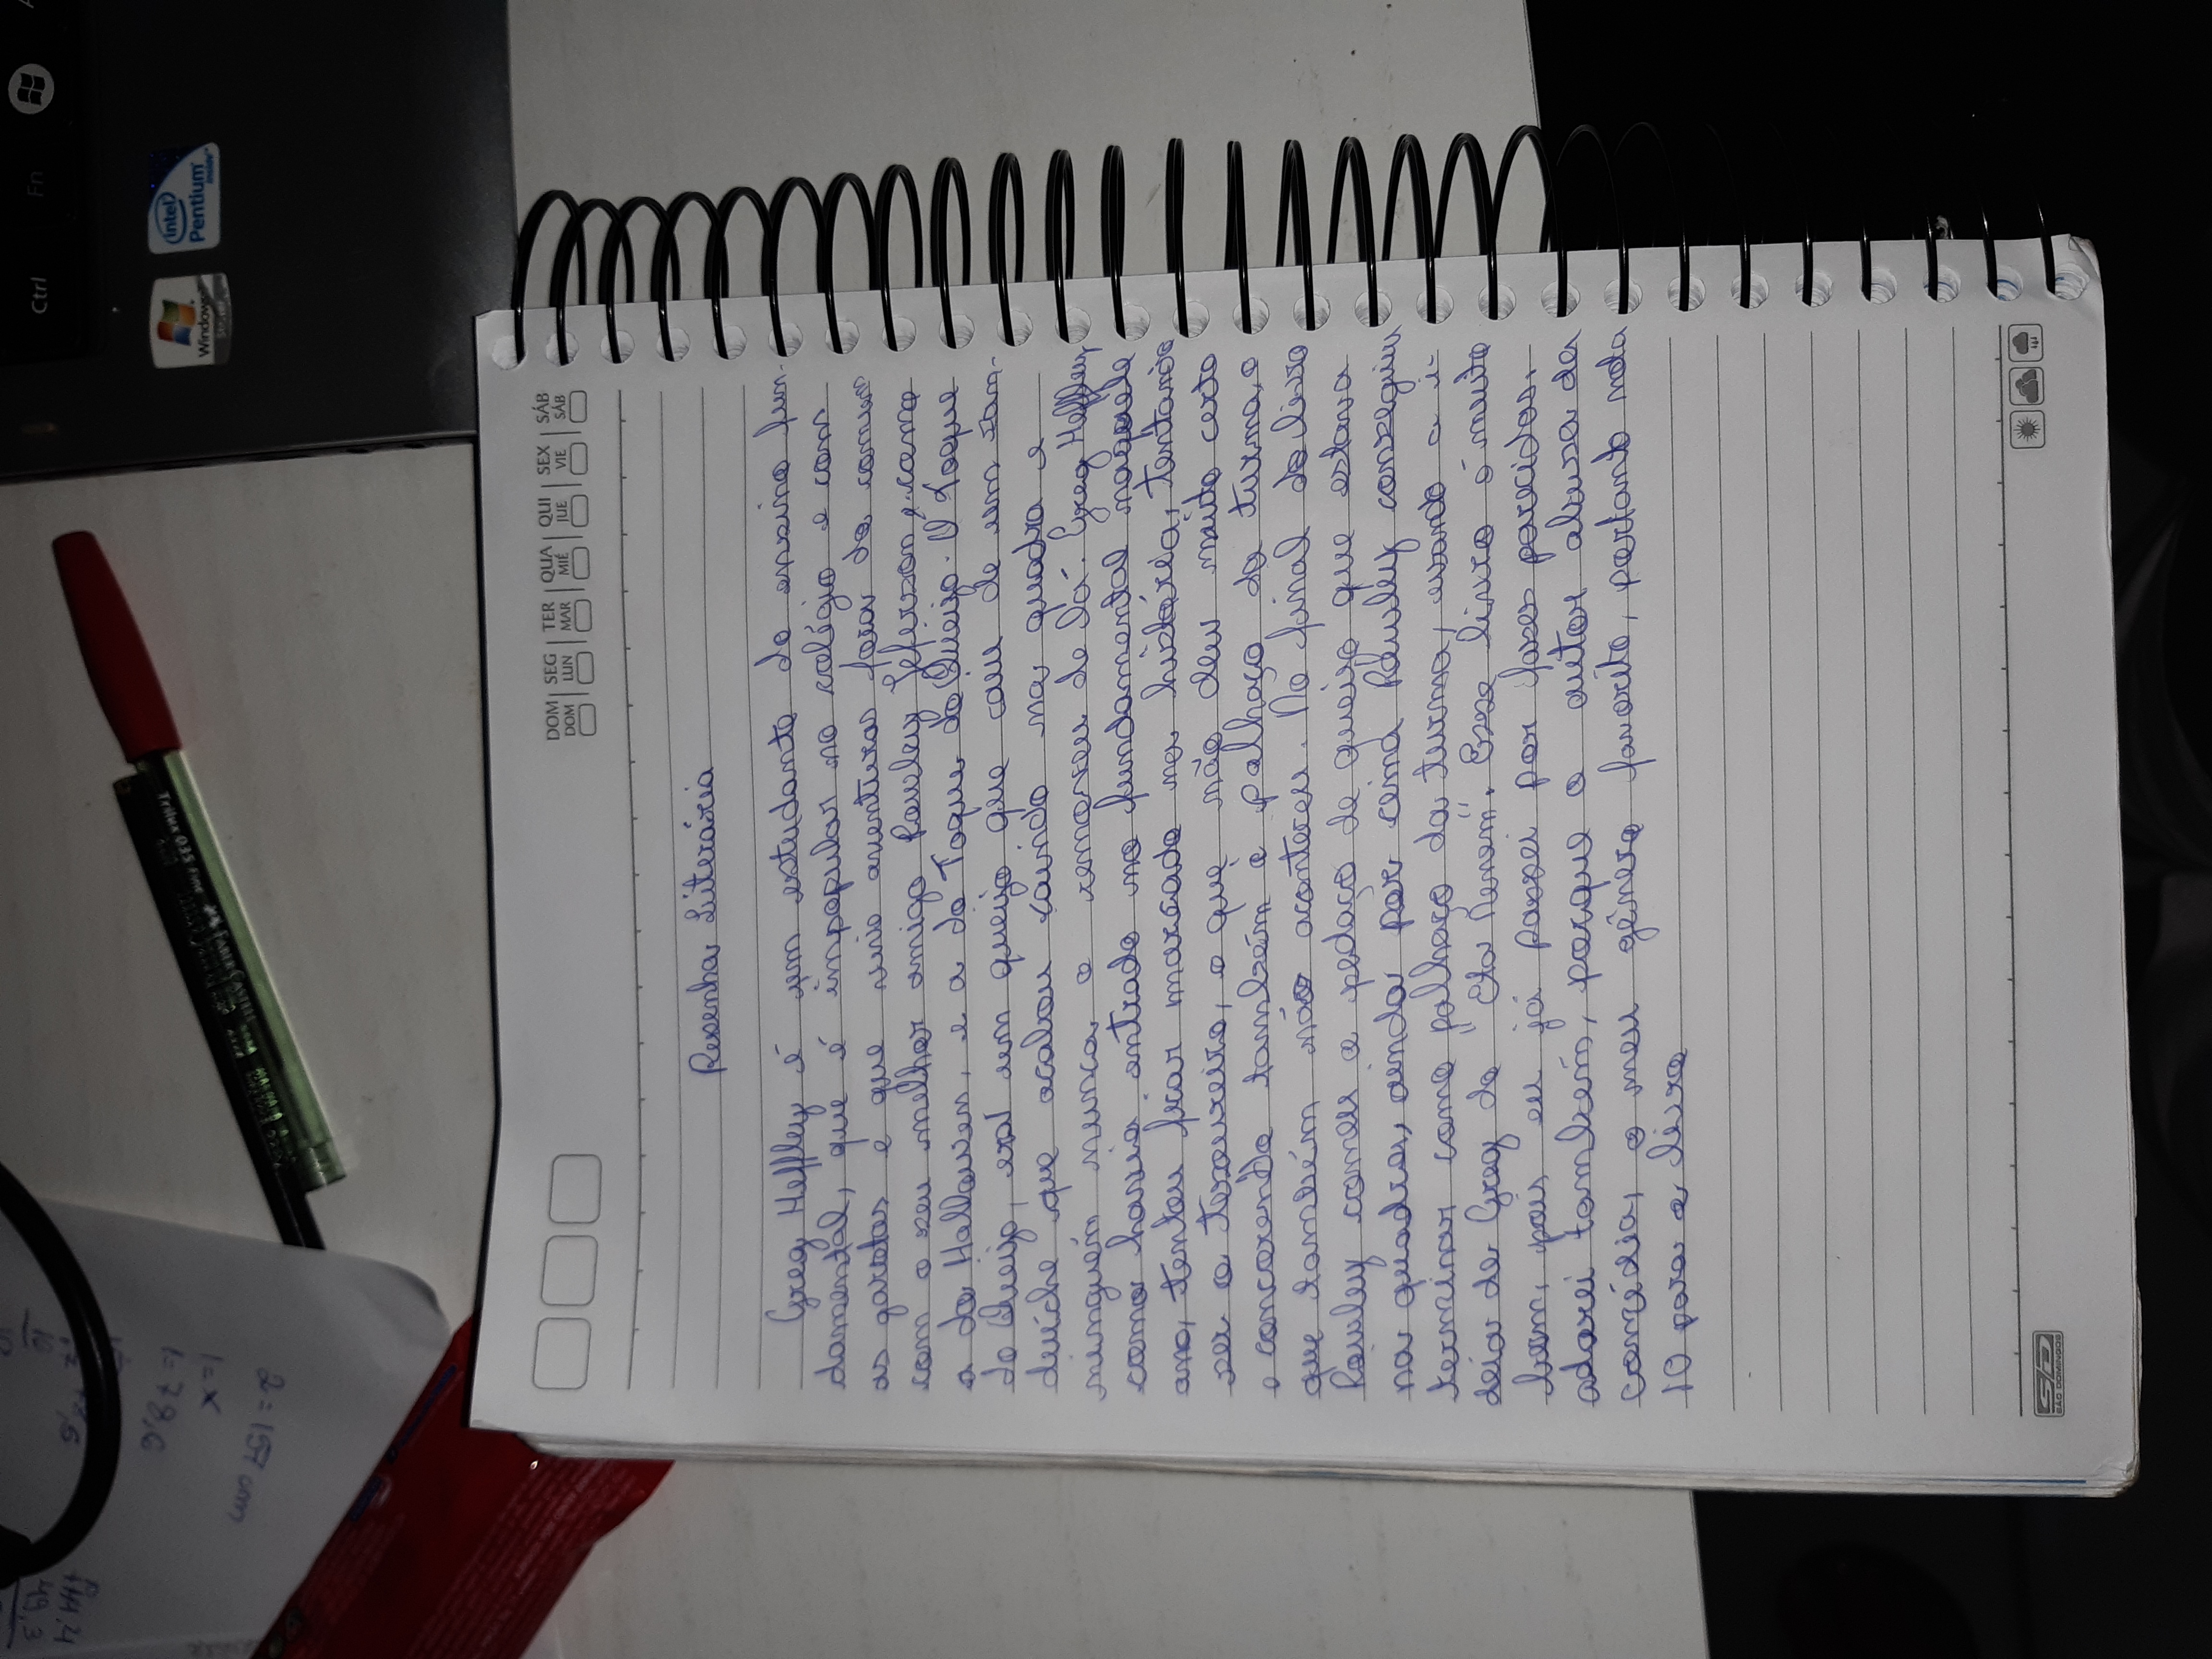 Ctrl
Fn
Windows
intel
Pentium
inside
Trilux 035 Fine
Faber-Castell
2 = 157 cm
1 = x
1 = 78,6
144,4
49,3
DOM SEG TER QUA QUI SEX SÁB
DOM LUN MAR MIÉ JUE VIE SÁB
Resenha Literária
Greg Heffley é um estudante do ensino fun-
damental, que é impopular no colégio e com
as garotas e que vive aventuras fora do comum
com o seu melhor amigo Rowley Jefferson, como
a do Halloween, e a do Toque do Queijo. O Toque
do Queijo, era um queijo que caiu de um san-
duíche que acabou caindo na quadra e
ninguém nunca o removeu de lá. Greg Heffley
como havia entrado no fundamental naquele
ano, tentou ficar marcado na história, tentando
ser o tesoureiro, o que não deu muito certo
e concorendo também a palhaço da turma, o
que também não aconteceu. No final do livro
Rowley comeu o pedaço de queijo que estava
na quadra, ainda por cima Rowley conseguiu
terminar como "palhaço da turma", usando a i-
déia de Greg do "Eta Neném". Esse livro é muito
bom, pois eu já passei por fases parecidas.
adorei também, porque o autor abusa da
comédia, o meu gênero favorito, portanto nota
10 para o livro
SD
SÃO DOMINGOS